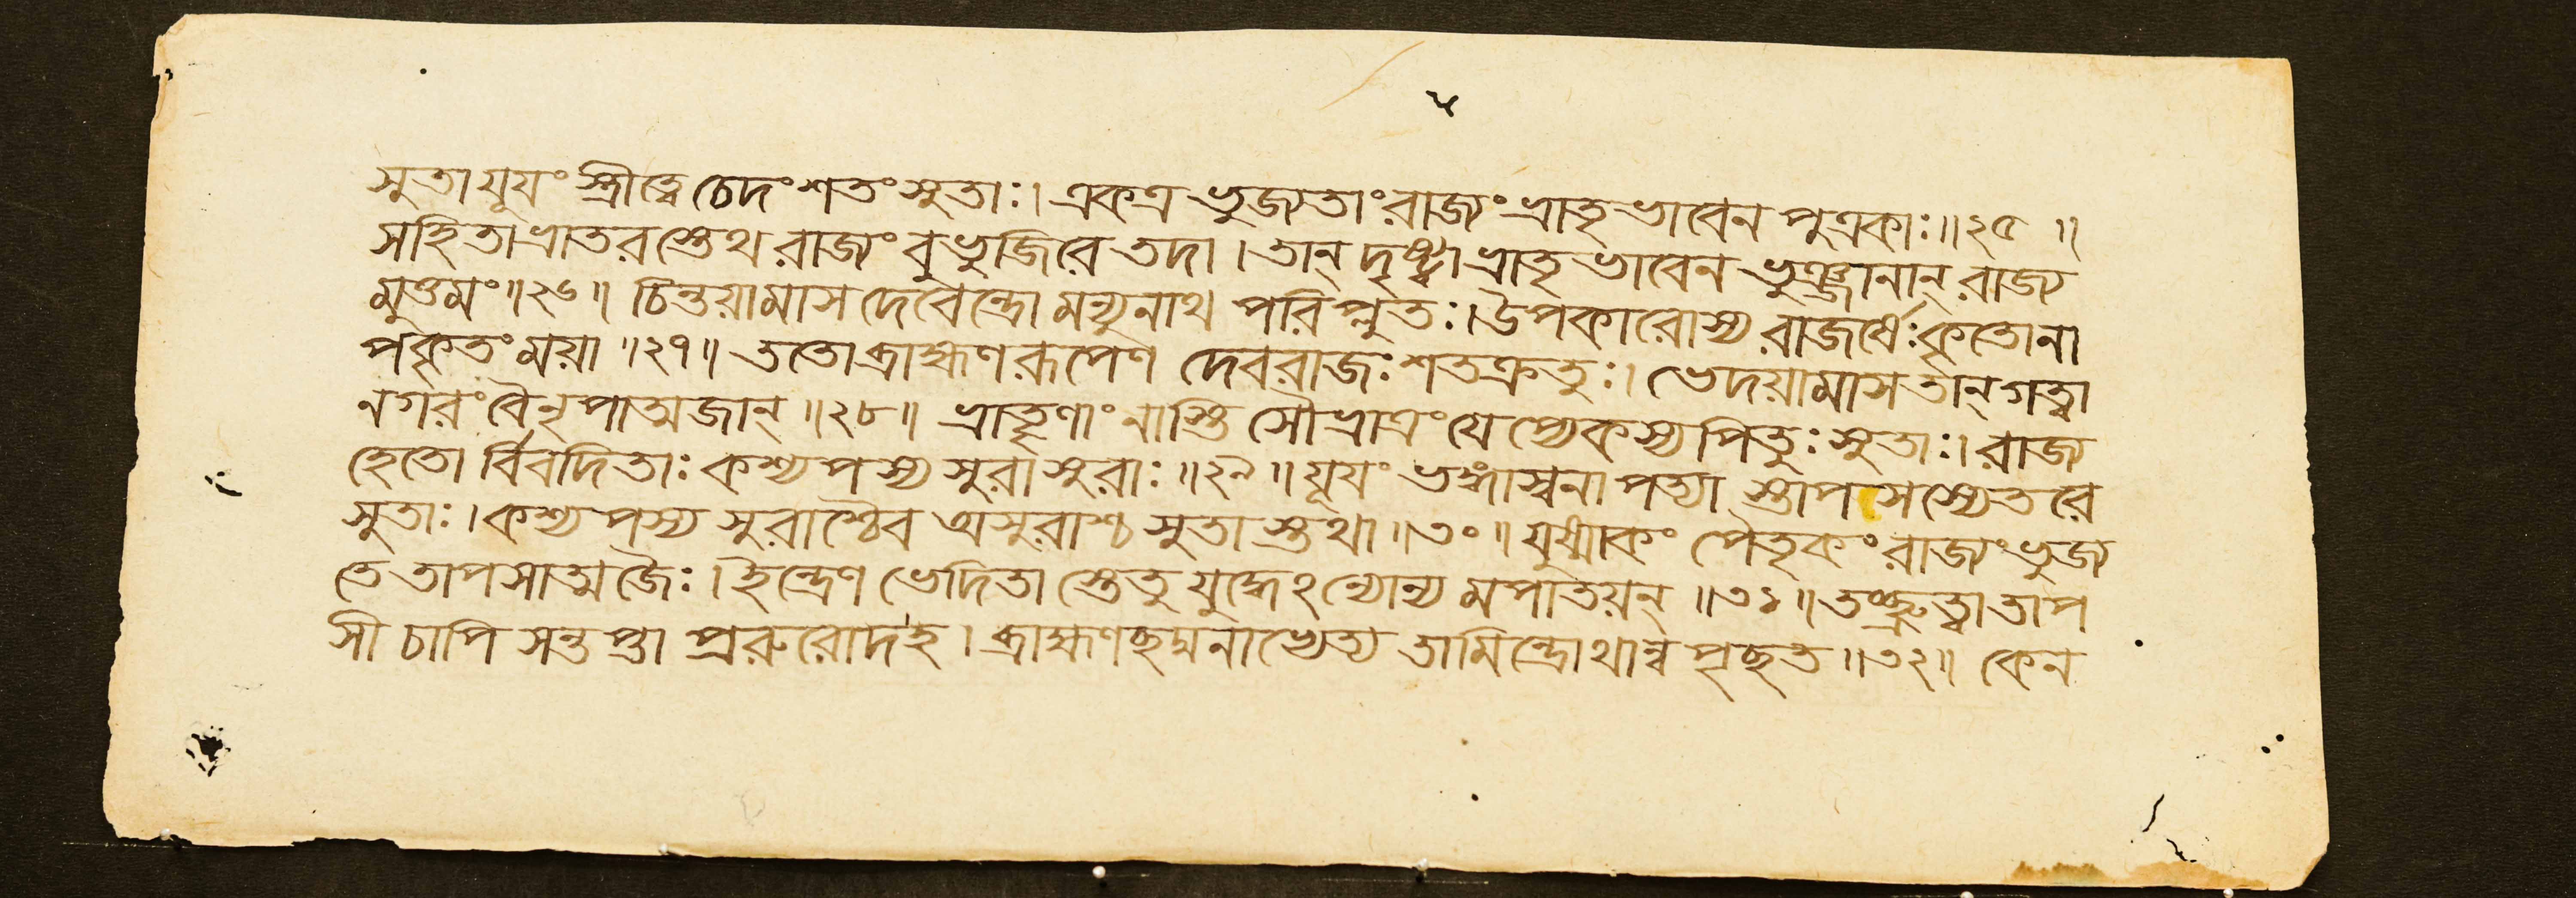 সুতা যূযং স্ত্রীত্বে চেদং শতং সুতাঃ। একত্র ভুজ্যতাং রাজ্যং ভ্রাতৃভাবেন পুত্রকাঃ॥২৫॥
সহিতা ভ্রাতরস্তেথ রাজ্যং বুভুজিরে তদা। তান্ দৃষ্ট্বা ভ্রাতৃভাবেন ভুঞ্জানান্ রাজ্য
মুত্তমং॥২৬॥ চিন্তয়ামাস দেবেন্দ্রো মন্যুনাথ পরিপ্লুতঃ। উপকারোস্য রাজর্ষেঃ কৃতো না
পকৃতং ময়া॥২৭॥ ততো ব্রাহ্মণরূপেণ দেবরাজঃ শতক্রতুঃ। ভেদয়ামাস তান্ গত্বা
নগরং বৈ নৃপাত্মজান্॥২৮॥ ভ্রাতৄণাং নাস্তি সৌভ্রাত্রং যেপ্যেকস্য পিতুঃ সুতাঃ। রাজ্য
হেতো র্বিবদিতাঃ কশ্যপস্য সুরাসুরাঃ॥২৯॥ যূযং ভঙ্গাস্বনাপত্যা স্তাপসস্যেতরে
সুতাঃ। কশ্যপস্য সুরাশ্চৈব অসুরাশ্চ সুতাস্তথা॥৩০॥ যুষ্মাকং পৈতৃকং রাজ্যং ভুজ্য
তে তাপসাত্মজৈঃ। ইন্দ্রেণ ভেদিতা স্তেতু যুদ্ধেঽন্যোন্য মপাতয়ন্॥৩১॥ তচ্ছ্রুত্বা তাপ
সী চাপি সন্তপ্তা প্ররুরোদ হ। ব্রাহ্মণছদ্মনাভ্যেত্য তামিন্দ্রোথান্বপৃচ্ছত॥৩২॥ কেন